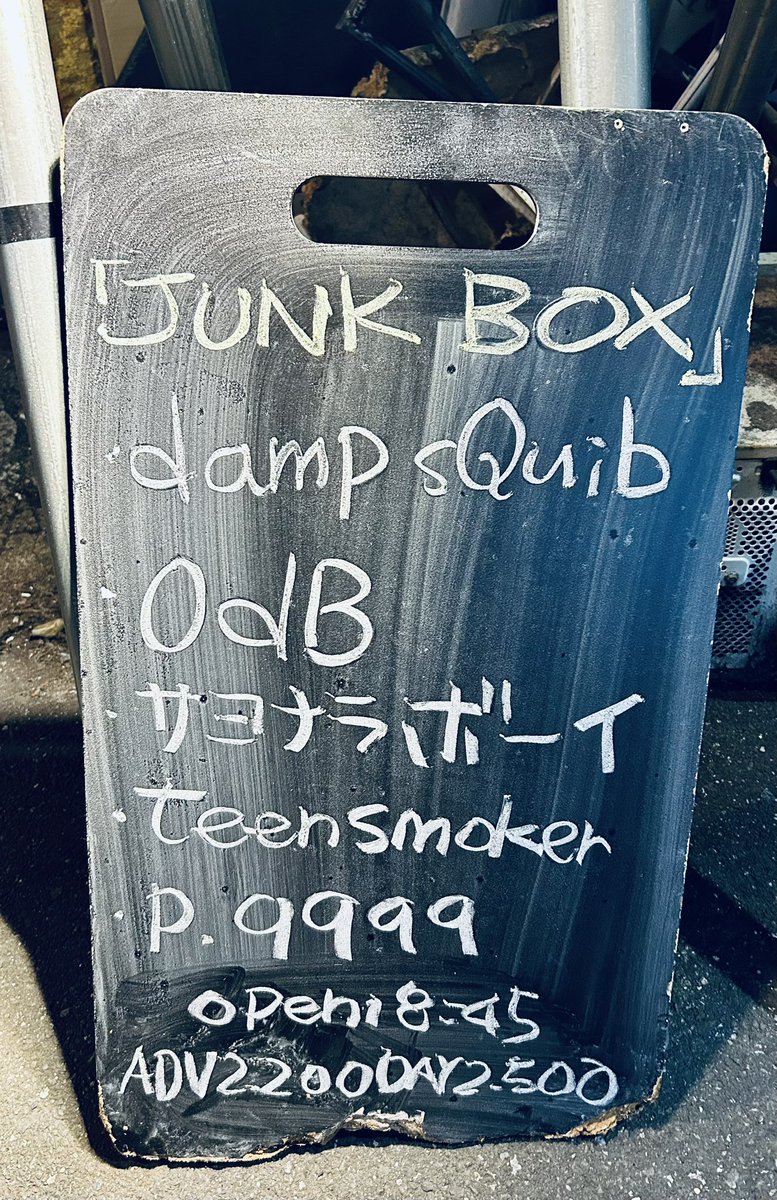 「JUNK BOX」
・damp sQuib
・0dB
・サヨナラボーイ
・teensmoker
・P.9999
open18:45
ADV2200DAY2500